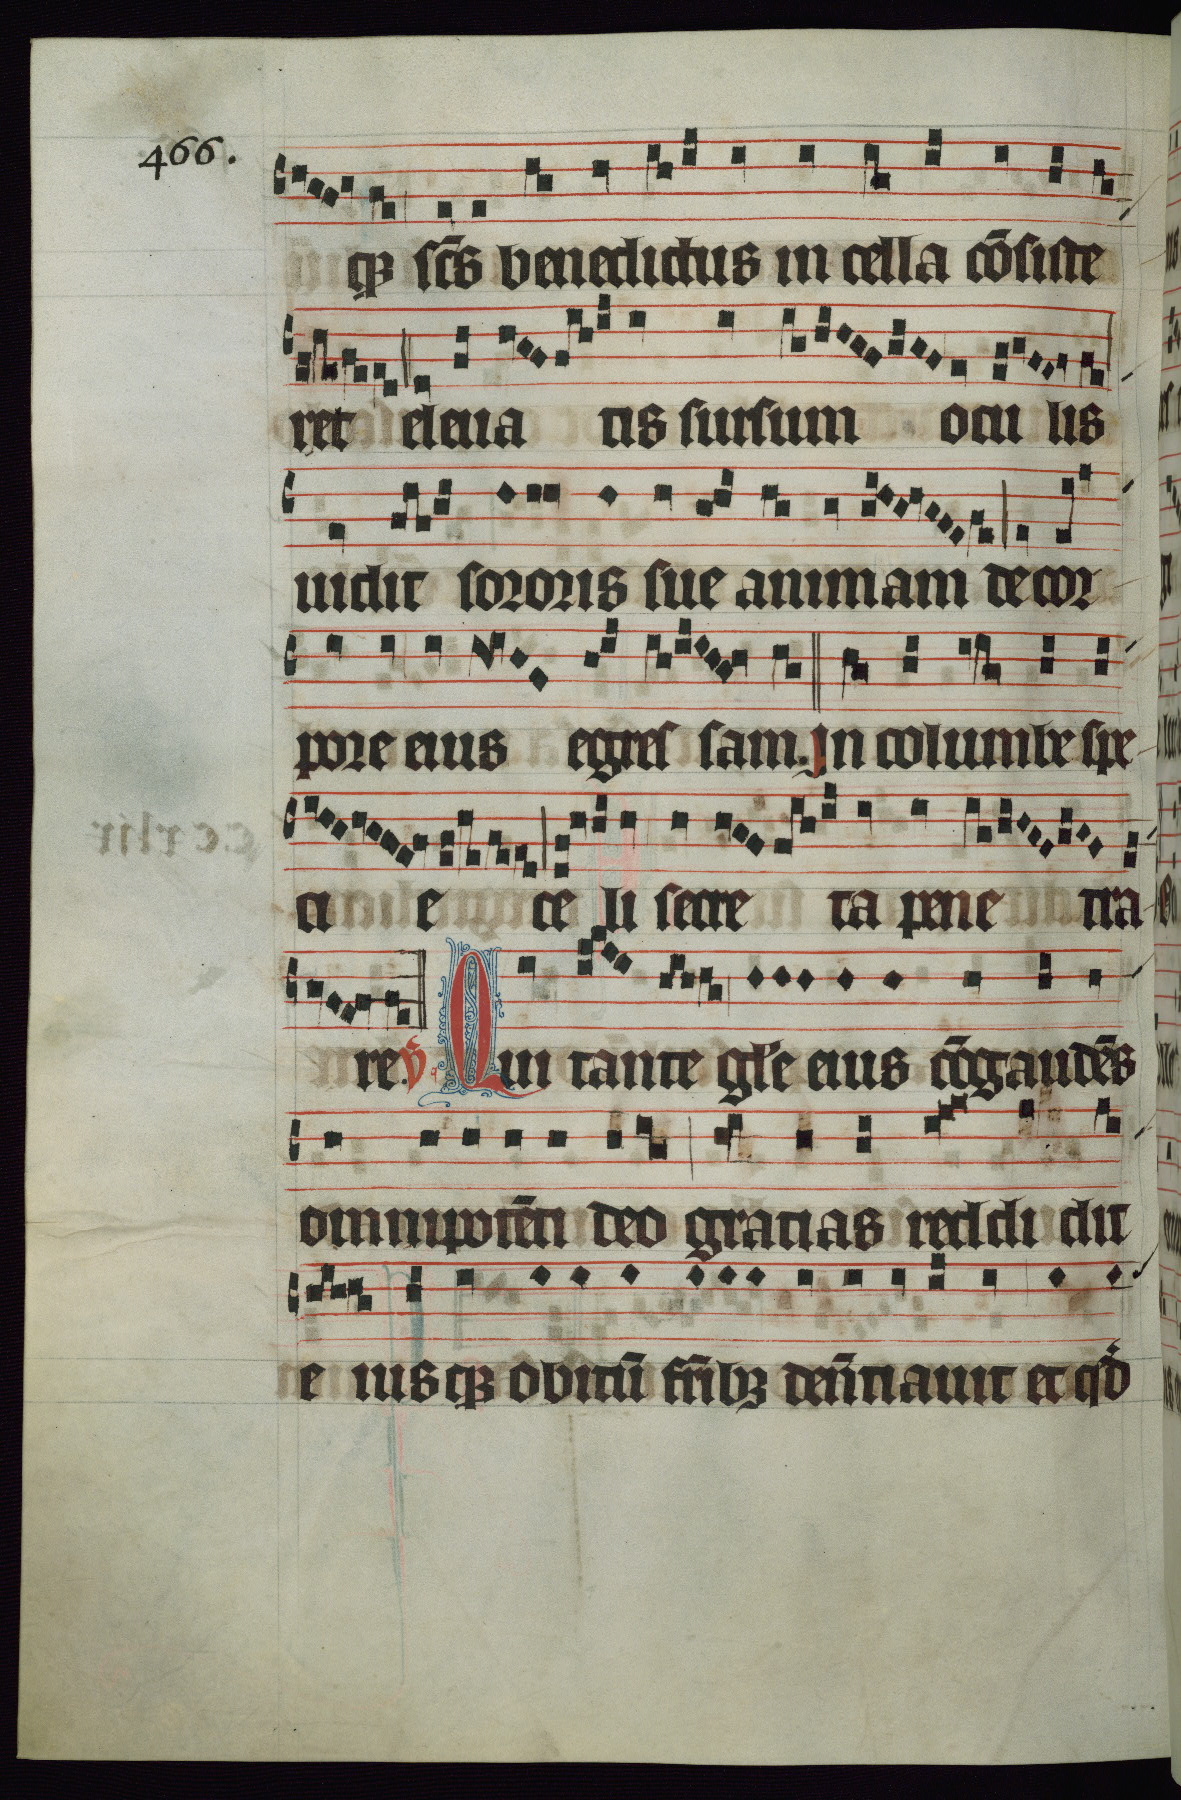 466.
qꝫ sc̄s benedictus in cella cōsiste
ret eleua tis sursum ocu lis
uidit sororis sue animam de cor
pore eius egres sam. In columbe spe
ci e ce li secre ta pene tra
re. V̄ Qui tante gl'e eius cōgaudēs
omnipotēti deo gratias reddi dit
e iusqꝫ obitū fr̄ibꝫ denūtiauit et qd̄